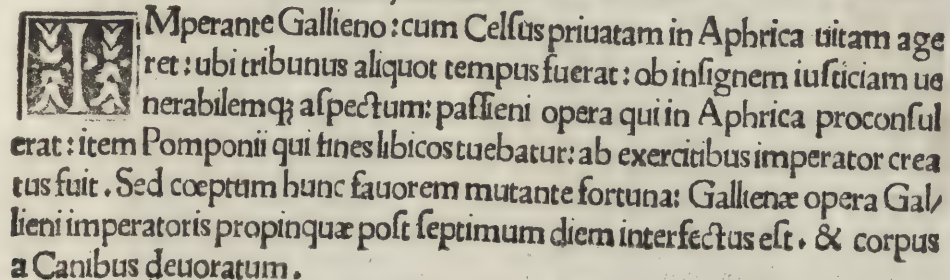 IMperante Gallieno : cum Celſus priuatam in Aphrica uitam age
ret : ubi tribunus aliquot tempus fuerat : ob inſignem iuſticiam ue
nerabilemqꝫ aſpectum : paſſieni opera qui in Aphrica proconſul
erat : item Pomponii qui fines libicos tuebatur : ab exercitibus imperator crea
tus fuit . Sed cœptum hunc fauorem mutante fortuna : Gallienæ opera Gal/
lieni imperatoris propinquæ poſt ſeptimum diem interfectus eſt . & corpus
a Canibus deuoratum .